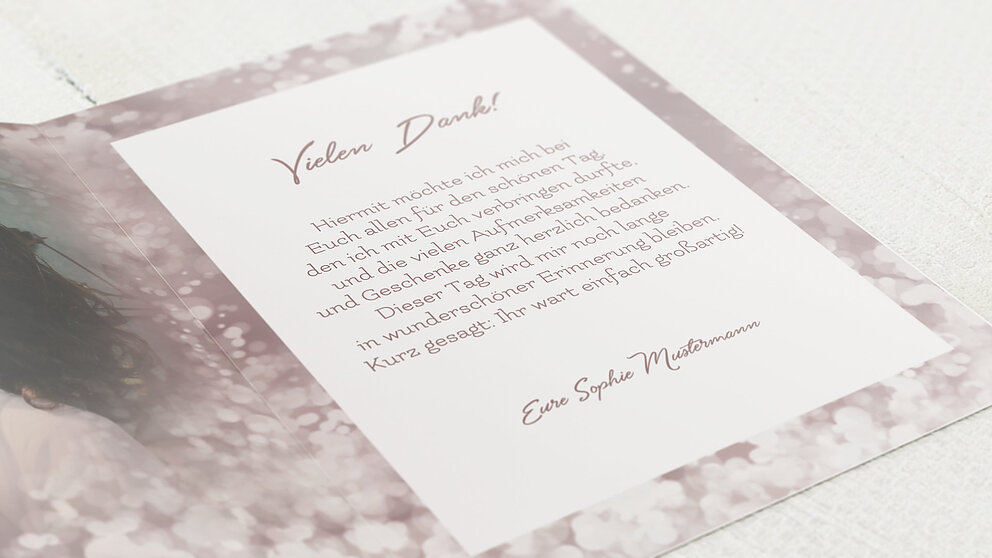 Vielen Dank!
Hiermit möchte ich mich bei
Euch allen für den schönen Tag,
den ich mit Euch verbringen durfte,
und die vielen Aufmerksamkeiten
und Geschenke ganz herzlich bedanken.
Dieser Tag wird mir noch lange
in wunderschöner Erinnerung bleiben.
Kurz gesagt: Ihr wart einfach großartig!
Eure Sophie Mustermann